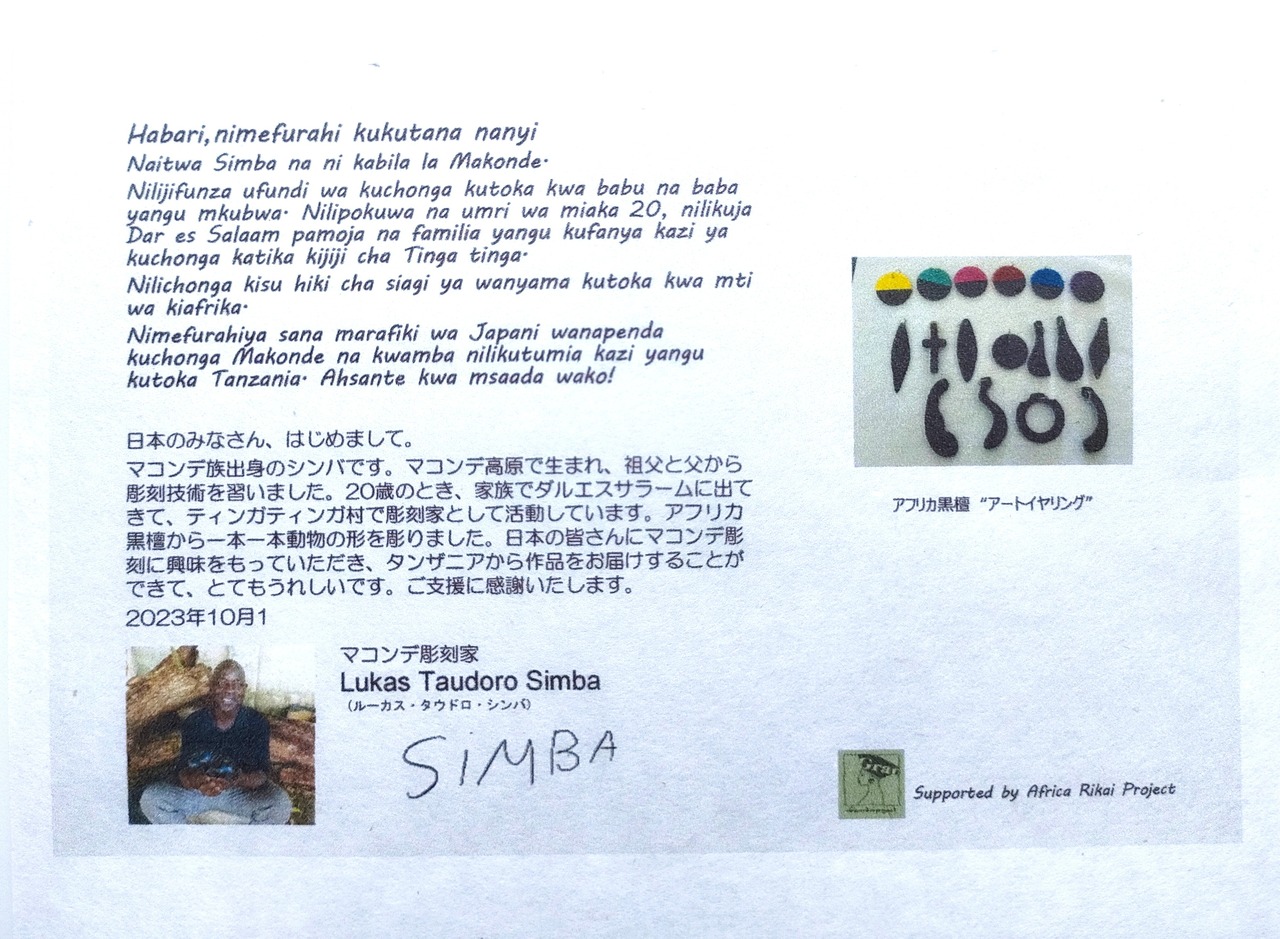 Habari, nimefurahi kukutana nanyi
Naitwa Simba na ni kabila la Makonde.
Nilijifunza ufundi wa kuchonga kutoka kwa babu na baba
yangu mkubwa. Nilipokuwa na umri wa miaka 20, nilikuja
Dar es Salaam pamoja na familia yangu kufanya kazi ya
kuchonga katika kijiji cha Tinga tinga.
Nilichonga kisu hiki cha siagi ya wanyama kutoka kwa mti
wa kiafrika.
Nimefurahiya sana marafiki wa Japani wanapenda
kuchonga Makonde na kwamba nilikutumia kazi yangu
kutoka Tanzania. Ahsante kwa msaada wako!
日本のみなさん、はじめまして。
マコンデ族出身のシンバです。マコンデ高原で生まれ、祖父と父から
彫刻技術を習いました。20歳のとき、家族でダルエスサラームに出て
きて、ティンガティンガ村で彫刻家として活動しています。アフリカ
黒檀から一本一本動物の形を彫りました。日本の皆さんにマコンデ彫
刻に興味をもっていただき、タンザニアから作品をお届けすることが
できて、とてもうれしいです。ご支援に感謝いたします。
2023年10月1
マコンデ彫刻家
Lukas Taudoro Simba
（ルーカス・タウドロ・シンバ）
SiMBA
アフリカ黒檀 “アートイヤリング”
Supported by Africa Rikai Project